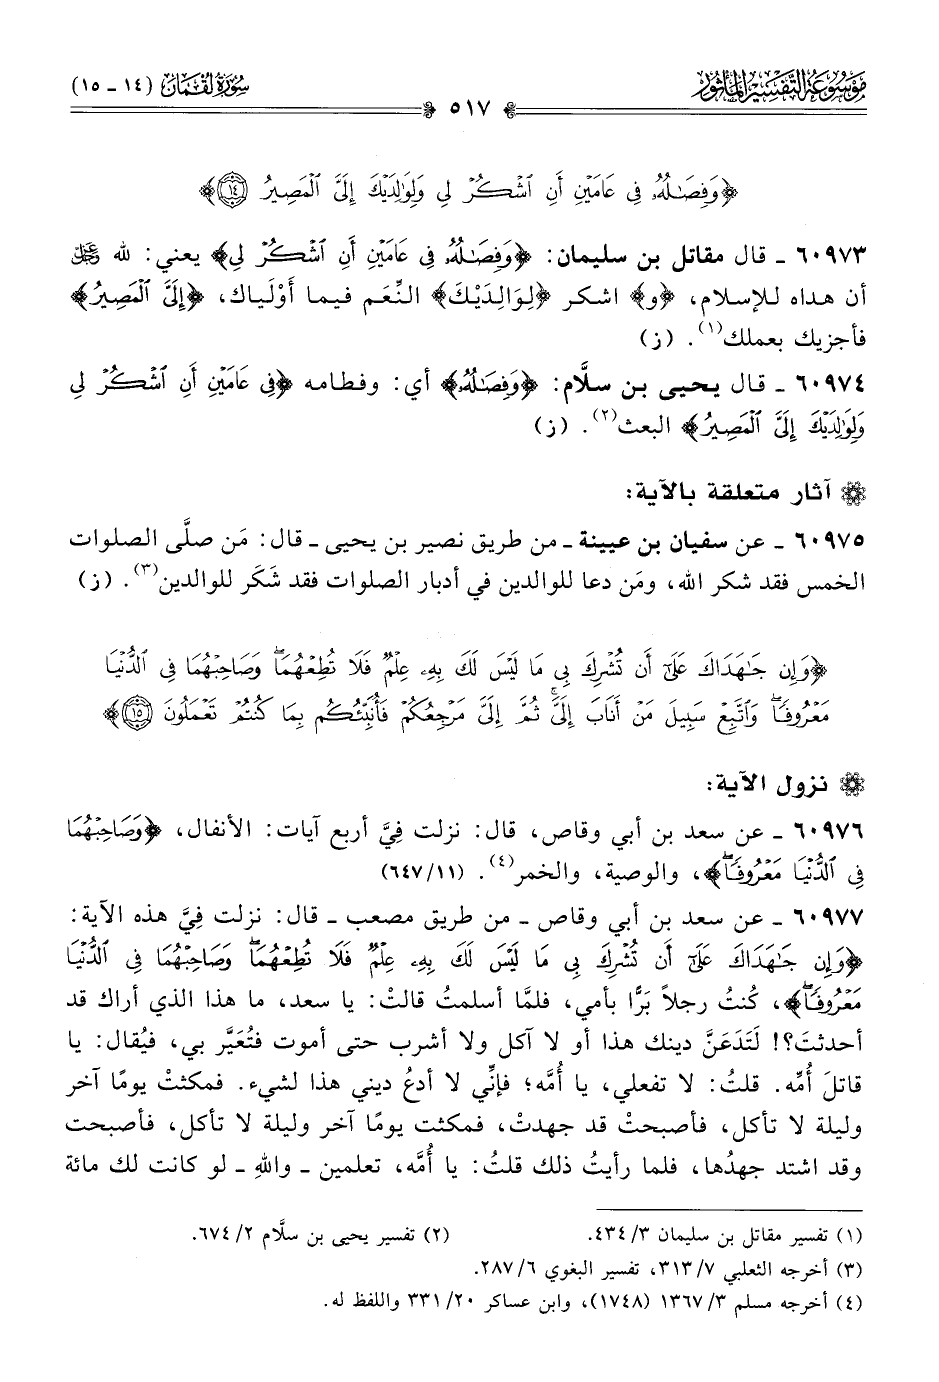 موسوعة التفسير المأثور
سورة لقمان (١٤ - ١٥)
٥١٧
﴿وَفِصَٰلُهُۥ فِى عَامَيْنِ أَنِ ٱشْكُرْ لِى وَلِوَٰلِدَيْكَ إِلَىَّ ٱلْمَصِيرُ ١٤﴾
٦٠٩٧٣ ـ قال مقاتل بن سليمان: ﴿وَفِصَٰلُهُۥ فِى عَامَيْنِ أَنِ ٱشْكُرْ لِى﴾ يعني: لله ﷿
أن هداه للإسلام، ﴿و﴾ اشكر ﴿لِوَالِدَيْكَ﴾ النِّعَم فيما أَوْلَياك، ﴿إِلَىَّ ٱلْمَصِيرُ﴾
فأجزيك بعملك(١). (ز)
٦٠٩٧٤ ـ قال يحيى بن سلَّام: ﴿وَفِصَٰلُهُۥ﴾ أي: وفطامه ﴿فِى عَامَيْنِ أَنِ ٱشْكُرْ لِى
وَلِوَٰلِدَيْكَ إِلَىَّ ٱلْمَصِيرُ﴾ البعث(٢). (ز)
آثار متعلقة بالآية:
٦٠٩٧٥ ـ عن سفيان بن عيينة ـ من طريق نصير بن يحيى ـ قال: مَن صلَّى الصلوات
الخمس فقد شكر الله، ومَن دعا للوالدين في أدبار الصلوات فقد شَكَر للوالدين(٣). (ز)
﴿وَإِن جَٰهَدَاكَ عَلَىٰٓ أَن تُشْرِكَ بِى مَا لَيْسَ لَكَ بِهِۦ عِلْمٌ فَلَا تُطِعْهُمَا ۖ وَصَاحِبْهُمَا فِى ٱلدُّنْيَا
مَعْرُوفًا ۖ وَٱتَّبِعْ سَبِيلَ مَنْ أَنَابَ إِلَىَّ ۚ ثُمَّ إِلَىَّ مَرْجِعُكُمْ فَأُنَبِّئُكُم بِمَا كُنتُمْ تَعْمَلُونَ ١٥﴾
نزول الآية:
٦٠٩٧٦ ـ عن سعد بن أبي وقاص، قال: نزلت فِيَّ أربع آيات: الأنفال، ﴿وَصَاحِبْهُمَا
فِى ٱلدُّنْيَا مَعْرُوفًا ۖ﴾، والوصية، والخمر(٤). (١١/ ٦٤٧)
٦٠٩٧٧ ـ عن سعد بن أبي وقاص ـ من طريق مصعب ـ قال: نزلت فِيَّ هذه الآية:
﴿وَإِن جَٰهَدَاكَ عَلَىٰٓ أَن تُشْرِكَ بِى مَا لَيْسَ لَكَ بِهِۦ عِلْمٌ فَلَا تُطِعْهُمَا ۖ وَصَاحِبْهُمَا فِى ٱلدُّنْيَا
مَعْرُوفًا ۖ﴾، كُنتُ رجلاً بَرًّا بأمي، فلمَّا أسلمتُ قالتْ: يا سعد، ما هذا الذي أراك قد
أحدثتَ؟! لَتَدَعَنَّ دينك هذا أو لا آكل ولا أشرب حتى أموت فتُعَيَّر بي، فيُقال: يا
قاتلَ أُمِّه. قلتُ: لا تفعلي، يا أُمَّه؛ فإنِّي لا أدعُ ديني هذا لشيء. فمكثتْ يومًا آخر
وليلة لا تأكل، فأصبحتْ قد جهدتْ، فمكثت يومًا آخر وليلة لا تأكل، فأصبحت
وقد اشتد جهدُها، فلما رأيتُ ذلك قلتُ: يا أُمَّه، تعلمين ـ واللهِ ـ لو كانت لك مائة
(١) تفسير مقاتل بن سليمان ٣/ ٤٣٤.
(٢) تفسير يحيى بن سلَّام ٢/ ٦٧٤.
(٣) أخرجه الثعلبي ٧/ ٣١٣، تفسير البغوي ٦/ ٢٨٧.
(٤) أخرجه مسلم ٣/ ١٣٦٧ (١٧٤٨)، وابن عساكر ٢٠/ ٣٣١ واللفظ له.